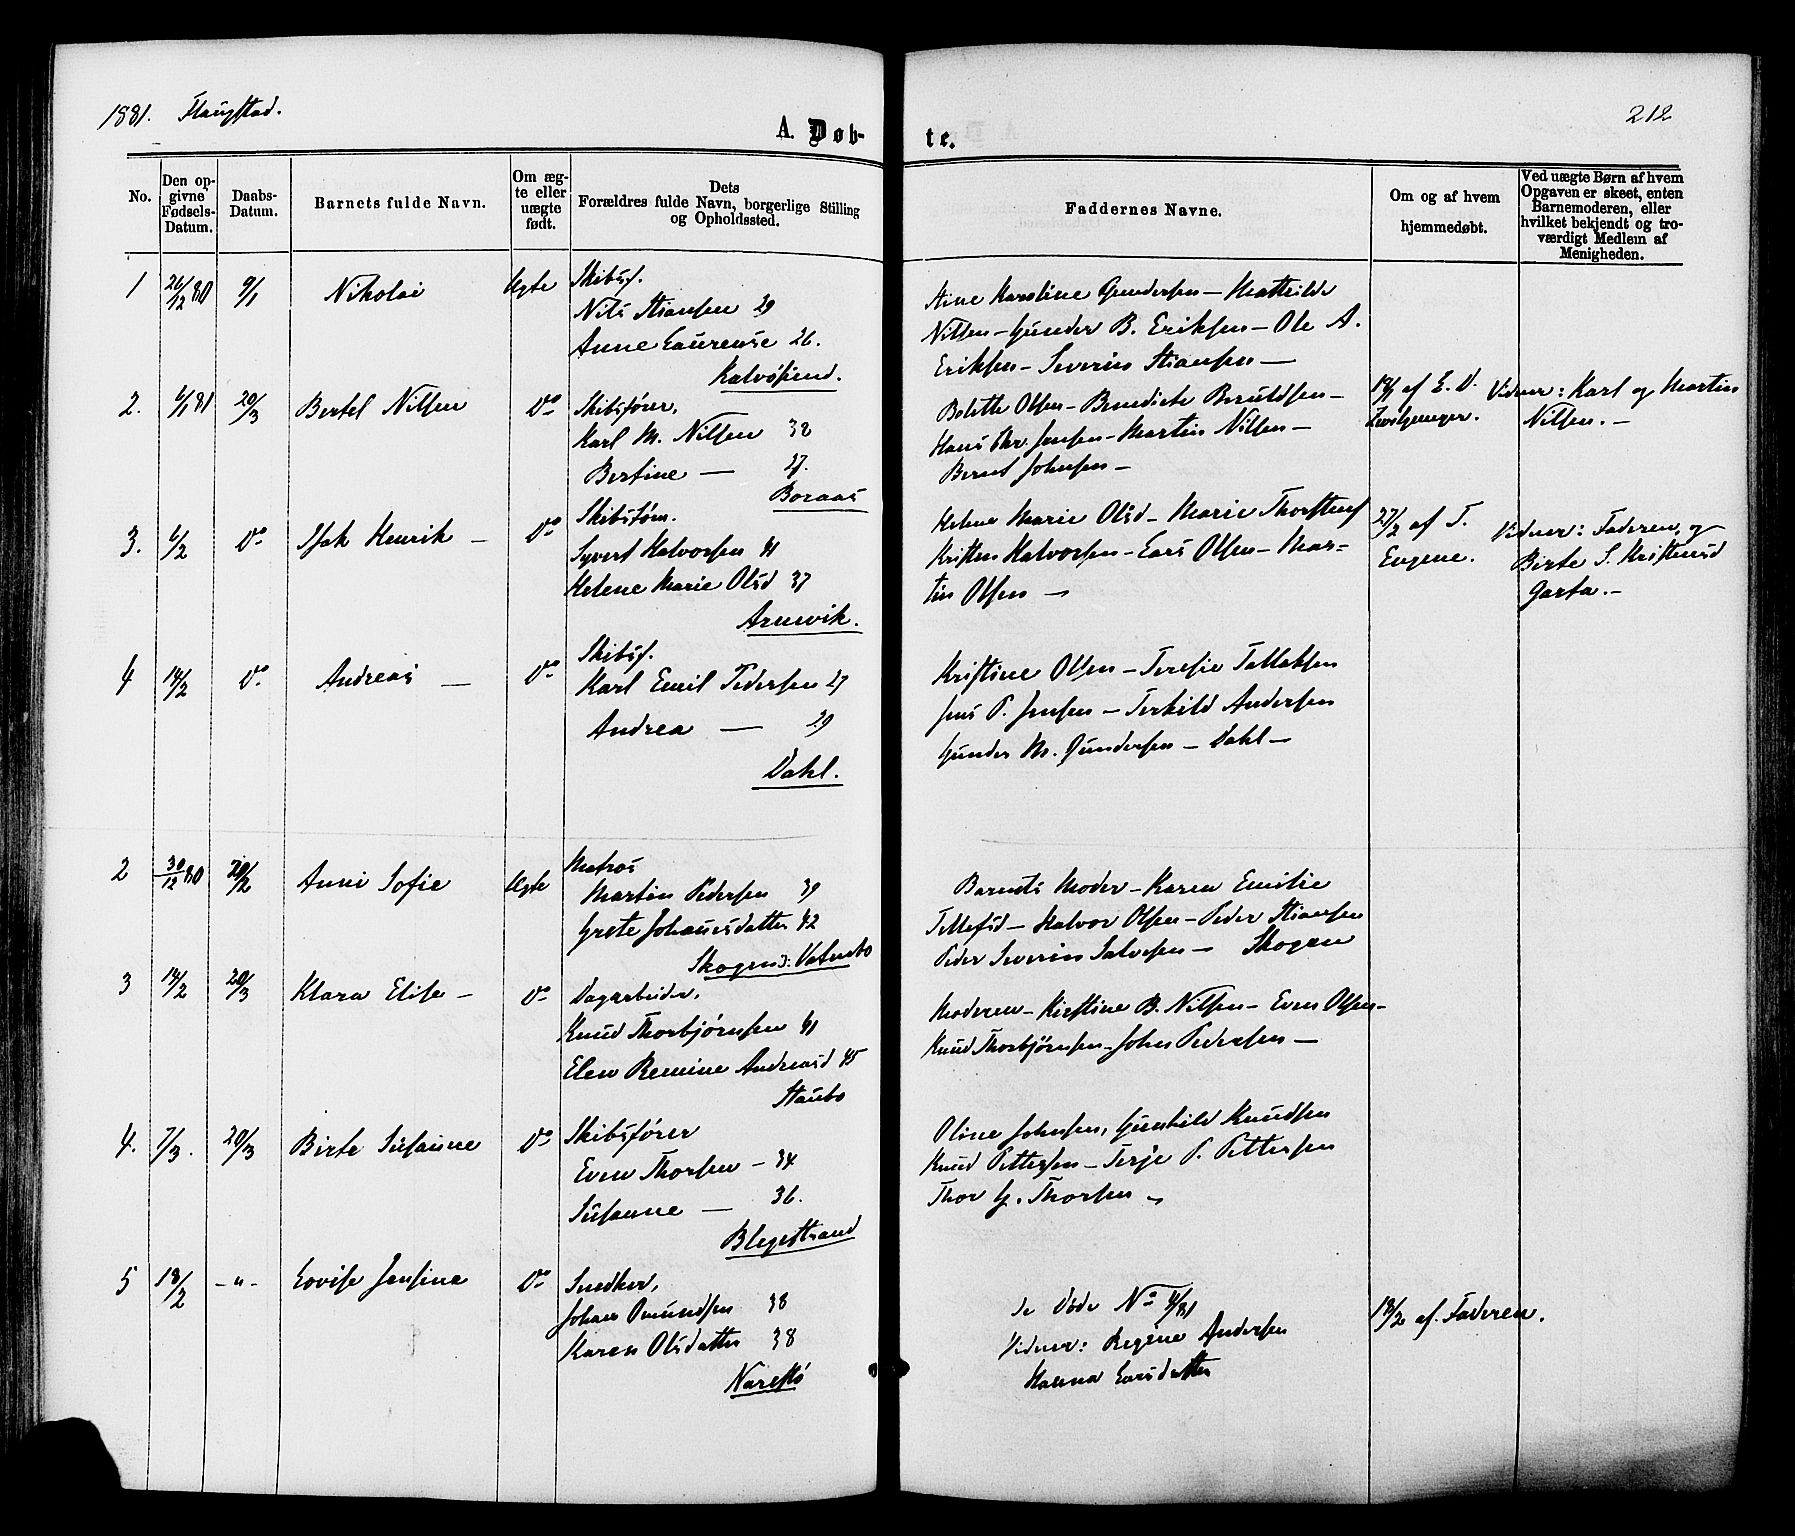 1881. Flangstad.
212
A. Døb-
te.
No.
Den op-
givne
Fødsels-
Datum.
Daabs-
Datum.
Barnets fulde Navn.
Om æg-
te eller
uægte
født.
Dets
Forældres fulde Navn, borgerlige Stilling
og Opholdssted.
Faddernes Navne.
Om og af hvem
hjemmedøbt.
Ved uægte Børn af hvem
Opgaven er skeet, enten
Barnemoderen, eller
hvilket bekjendt og tro-
værdigt Medlem af
Menigheden.
1 26/12 80 9/1 Nikolai Ægte Skibsf.
Nils Stiansen 29
Anne Laurense 26.
Kalvøsund.
Karoline Gundersen – Mathilde
Nilsen – Gunder B. Eriksen – Ole A.
Eriksen – Severin Stiansen –
2. 6/1 81 20/3 Bertel Nilsen Do Skibsfører,
Karl M. Nilsen 32
Bertine — 27.
Boraas
Bolette Olsen – Benedicte Beruldsen –
Hans Chr. Jensen – Martin Nilsen –
Bernt Johnsen –
18/1 af E. D.
Vidner: Karl og Martin
Nilsen. –
3. 6/2 Do Isak Henrik – Do Skibstøm.
Syvert Halvorsen 41
Helene Marie Olsd 37
Arnevik.
Helene Marie Olsd – Marie Thorstens
Kristen Halvorsen – Lars Olsen – Mar-
tin Olsen –
27/2 af T.
Eugene.
Vidner: Faderen, og
Birte S. Kristensd
Garta. –
4 14/2 Do Andreas – Do Skibsf.
Karl Emil Pedersen 27
Andrea — 29
Dahl.
Kristine Olsen – Teresie Tallaksen
Jens P. Jensen – Terkild Andersen
Gunder M. Gundersen – Dahl –
2 30/12 80 20/2 Anne Sofie Ægte Matros
Martin Pedersen 39
Grete Johannesdatter 42
Skogen i: Vatnebo
Barnets Moder – Karen Emilie
Tellefsd – Halvor Olsen – Peder Stiansen
Peder Severin Salvesen – Skogen
3 14/2 20/3 Klara Elise – Do Dagarbeider,
Knud Thorbjørnsen 41
Elen Remine Andreasd 45
Staubo
Moderen – Kirstine B. Nilsen – Even Olsen –
Knud Thorbjørnsen – John Pedersen –
4. 7/3. 20/3 Birte Susanne Do Skibsfører
Even Thorsen – 34
Susanne — 36.
Blegestrand
Oline Johnsen, Gunhild Knudsen
Knud Pettersen – Terje P. Pettersen
Thor G. Thorsen –
5 18/2 -"- Lovise Jensine Do Snedker,
Johan Omundsen 38
Karen Olsdatter 38
Narestø
se Døde No 4/81
Vidner: Regine Andersen
Hanna Larsdatter
18/2 af Faderen.